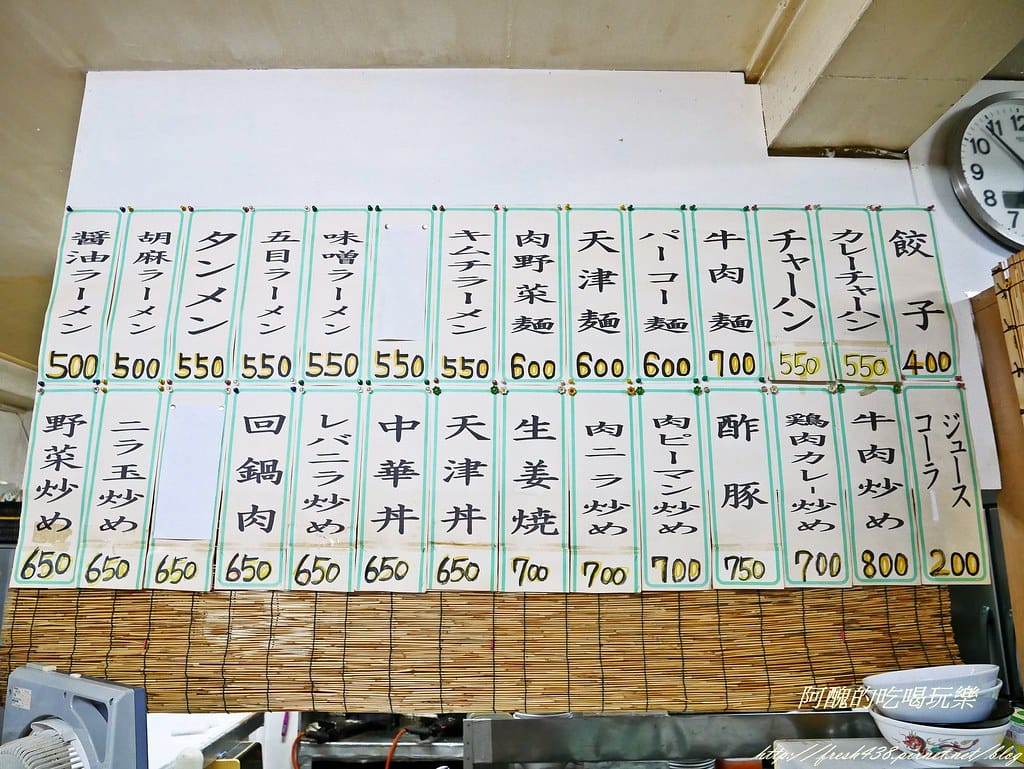 醤油ラーメン 500
胡麻ラーメン 500
タンメン 550
五目ラーメン 550
味噌ラーメン 550
550
キムチラーメン 550
肉野菜麺 600
天津麺 600
パーコー麺 600
牛肉麺 700
チャーハン 550
カレーチャーハン 550
餃子 400
野菜炒め 650
ニラ玉炒め 650
650
回鍋肉 650
レバニラ炒め 650
中華丼 650
天津丼 650
生姜焼 700
肉ニラ炒め 700
肉ピーマン炒め 700
酢豚 750
鶏肉カレー炒め 700
牛肉炒め 800
ジュース
コーラ 200
12
11
10
9
8
7
阿醜的吃喝玩樂
http://fresh438.pixnet.net/blog